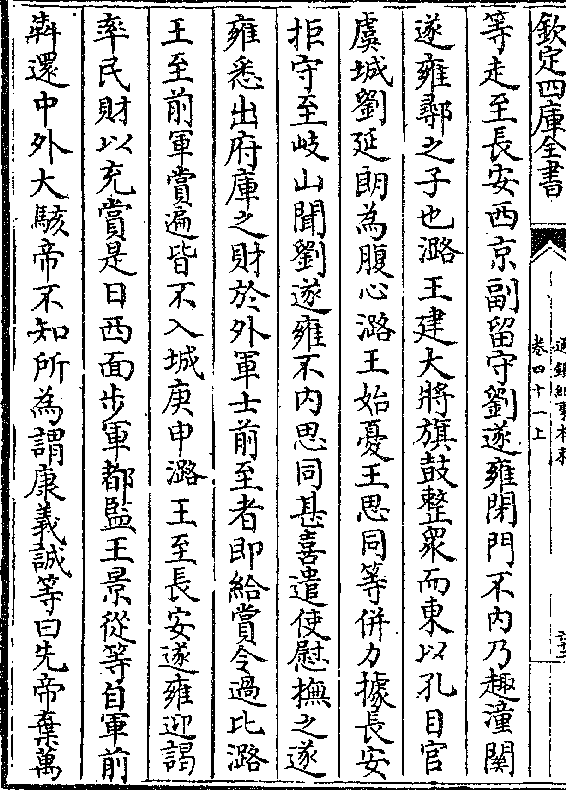 欽定四庫全書
通鑑紀事本末
卷四十一上
等走至長安西京副留守劉遂雍閉門不內乃趣潼關
遂雍鄩之子也潞王建大將旗鼓整衆而東以孔目官
虞城劉延朗為腹心潞王始憂王思同等併力據長安
拒守至岐山聞劉遂雍不內思同甚喜遣使慰撫之遂
雍悉出府庫之財於外軍士前至者即給賞令過比潞
王至前軍賞遍皆不入城庚申潞王至長安遂雍迎謁
率民財以充賞是日西面步軍都監王景從等自軍前
犇還中外大駭帝不知所為謂康義誠等曰先帝棄萬